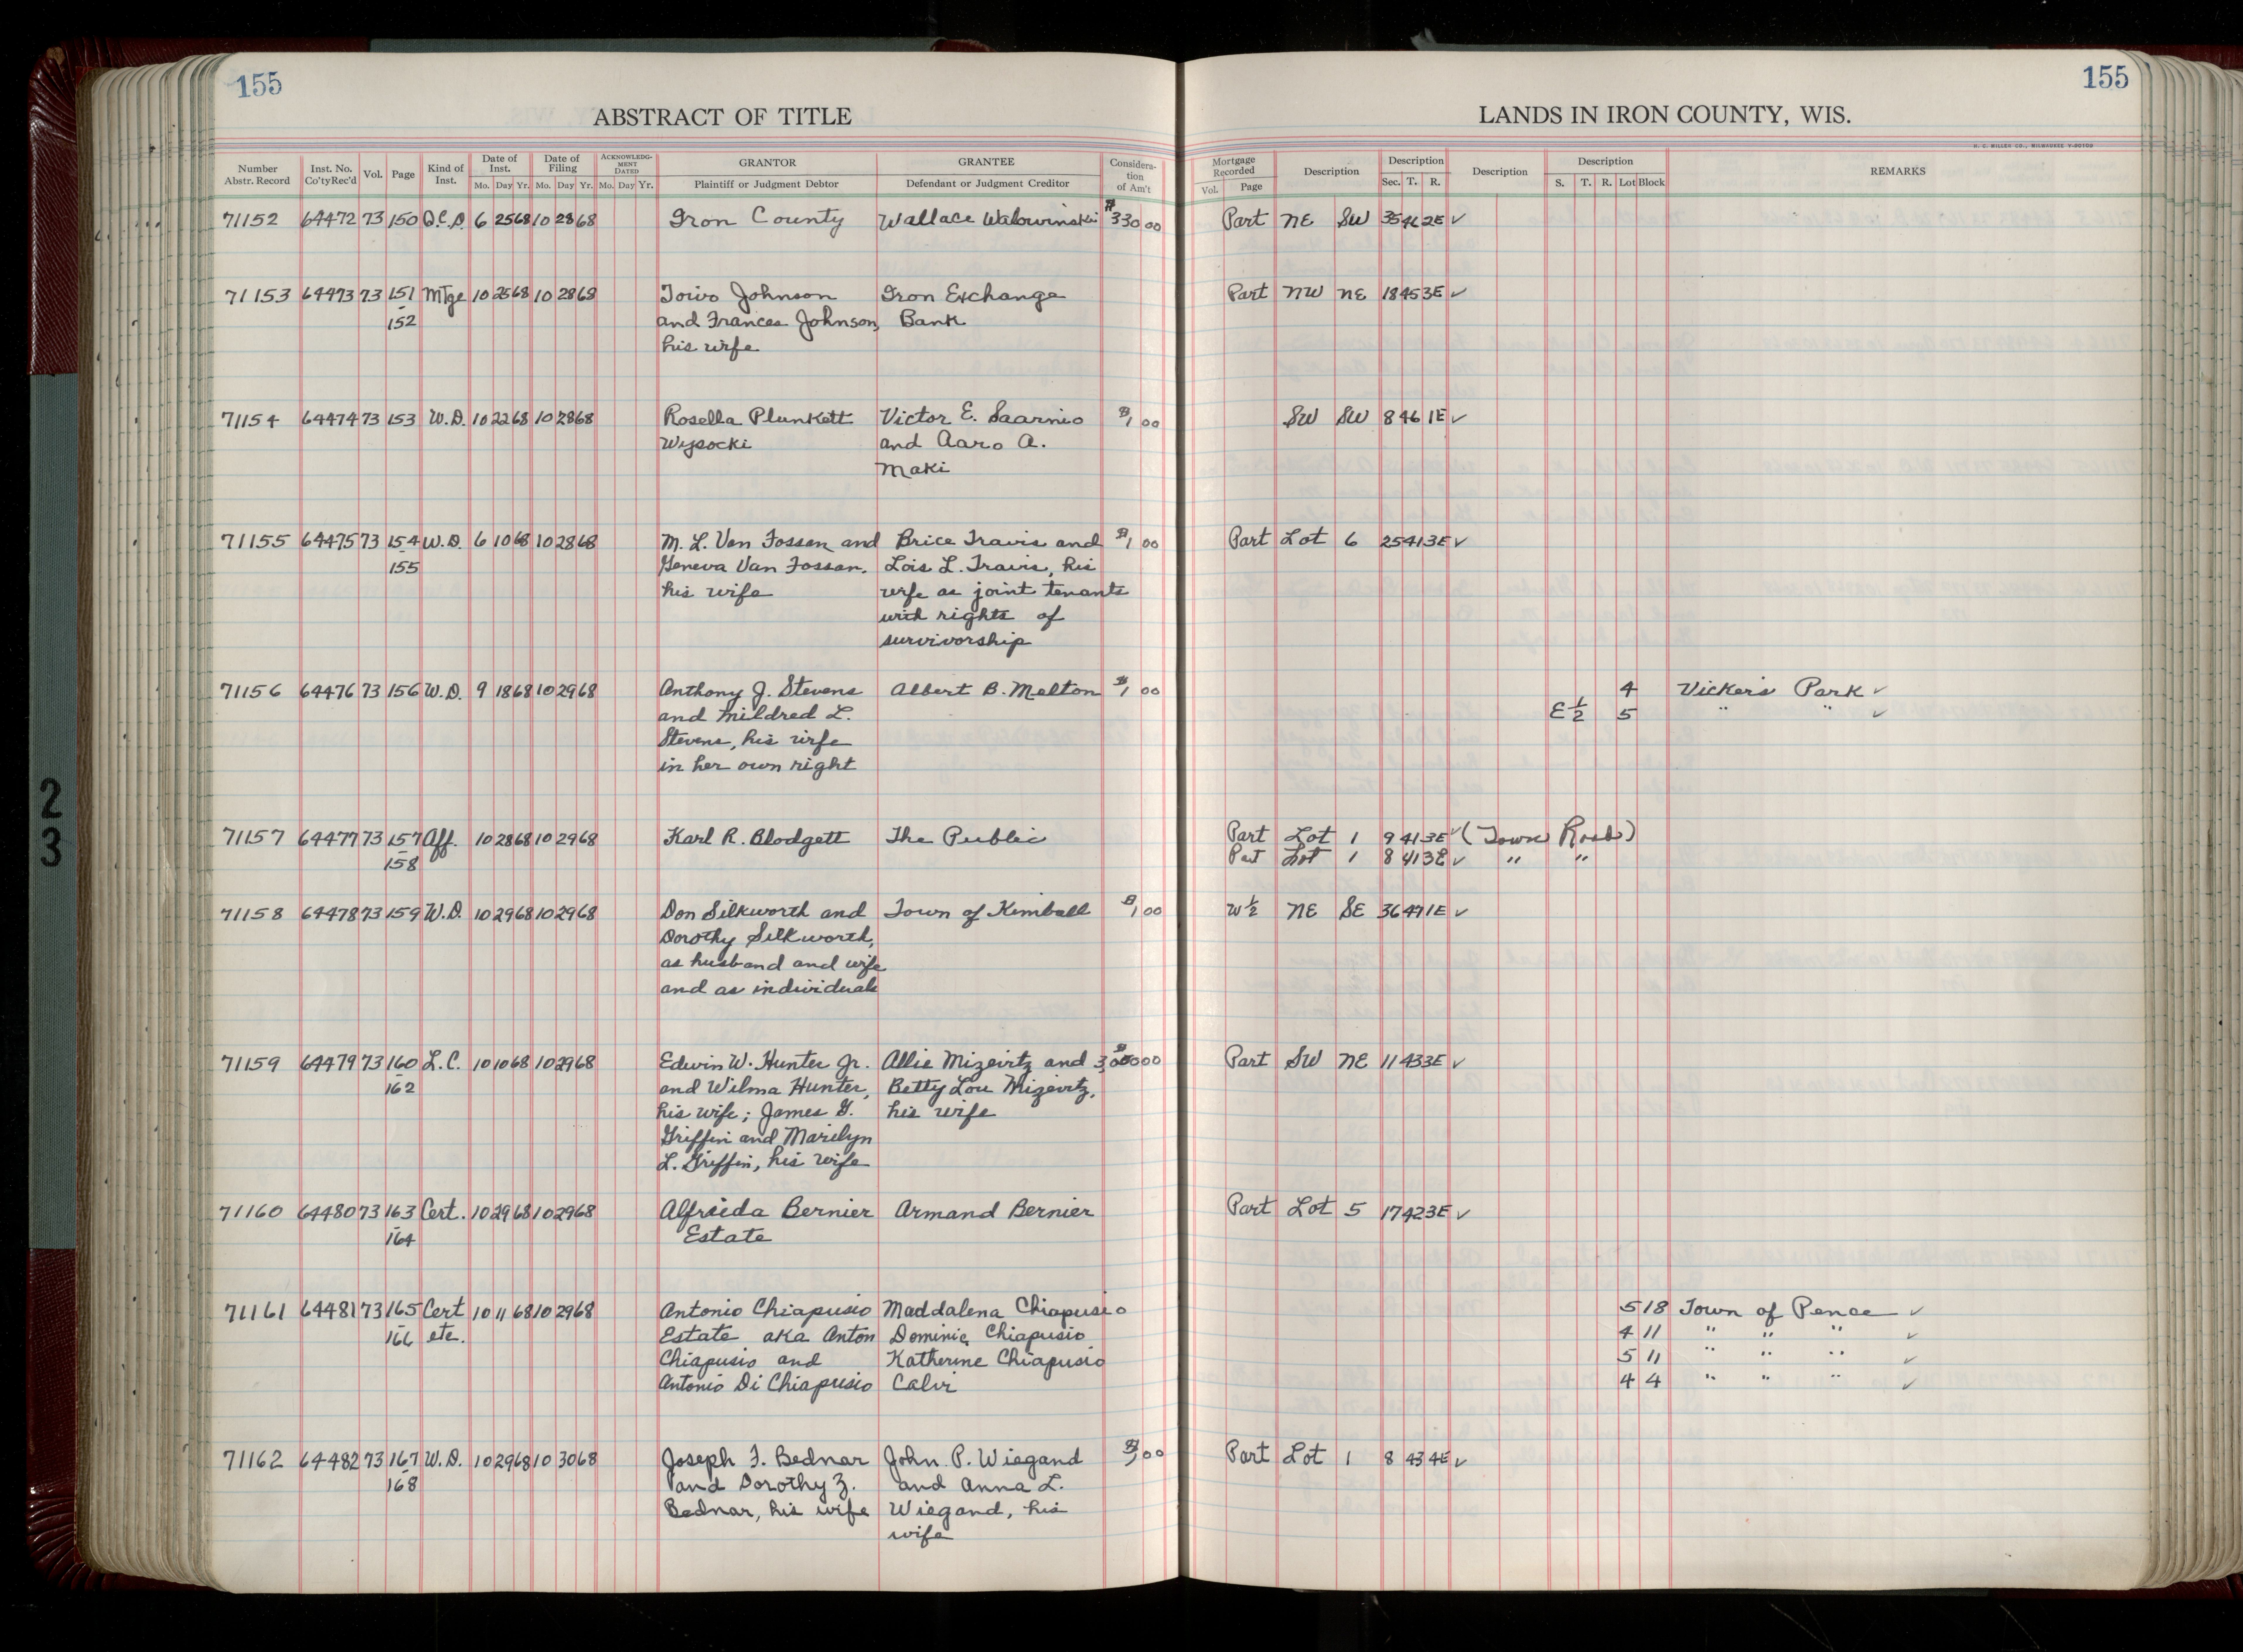 155
155
ABSTRACT OF TITLE
LANDS IN IRON COUNTY, WIS.
H. C. MILLER CO., MILWAUKEE
Number Abstr. Record Inst. No. Co'ty Rec'd Vol. Page Kind of Inst. Date of Inst. Mo. Day Yr. Date of Filing Mo. Day Yr. ACKNOWLEDGMENT DATED Mo. Day Yr. GRANTOR Plaintiff or Judgment Debtor GRANTEE Defendant or Judgment Creditor Consideration of Am't Mortgage Recorded Vol. Page Description Description Sec. T. R. Description Description S. T. R. Lot Block REMARKS
71152 64472 73 150 Q.C.D. 6 25 68 10 28 68 Iron County Wallace Walowinski $330 00 Part NE SW 35 46 2E ✓
71153 64473 73 151 Mtge 10 25 68 10 28 68 Toivo Johnson Iron Exchange Part NW NE 18 45 3E ✓
-152 and Frances Johnson, Bank
his wife
71154 64474 73 153 W.D. 10 22 68 10 28 68 Rosella Plunkett Victor E. Saarnio $1 00 SW SW 8 46 1E ✓
Wysocki and Aaro A.
Maki
71155 64475 73 154 W.D. 6 10 68 10 28 68 M. L. Van Fossen and Brice Travis and $1 00 Part Lot 6 25 41 3E ✓
-155 Geneva Van Fossen, Lois L. Travis, his
his wife wife as joint tenants
with rights of
survivorship
71156 64476 73 156 W.D. 9 18 68 10 29 68 Anthony J. Stevens Albert B. Melton $1 00 4 Vicker's Park ✓
and Mildred L. E ½ 5 " " ✓
Stevens, his wife
in her own right
71157 64477 73 157 Aff. 10 28 68 10 29 68 Karl R. Blodgett The Public Part Lot 1 9 41 3E ✓ (Town Road)
-158 Part Lot 1 8 41 3E ✓ " "
71158 64478 73 159 W.D. 10 29 68 10 29 68 Don Silkworth and Town of Kimball $1 00 W ½ NE SE 36 47 1E ✓
Dorothy Silkworth,
as husband and wife
and as individuals
71159 64479 73 160 L.C. 10 10 68 10 29 68 Edwin W. Hunter Jr. Allie Mizevitz and $3,000 00 Part SW NE 11 43 3E ✓
-162 and Wilma Hunter, Betty Lou Mizevitz,
his wife; James G. his wife
Griffin and Marilyn
L. Griffin, his wife
71160 64480 73 163 Cert. 10 29 68 10 29 68 Alfreida Bernier Armand Bernier Part Lot 5 17 42 3E ✓
-164 Estate
71161 64481 73 165 Cert 10 11 68 10 29 68 Antonio Chiapusio Maddalena Chiapusio 5 18 Town of Pence ✓
-166 etc. Estate aka Anton Dominic Chiapusio 4 11 " " " ✓
Chiapusio and Katherine Chiapusio 5 11 " " " ✓
Antonio Di Chiapusio Calvi 4 4 " " " ✓
71162 64482 73 167 W.D. 10 29 68 10 30 68 Joseph F. Bednar John P. Wiegand $1 00 Part Lot 1 8 43 4E ✓
-168 and Dorothy Z. and Anna L.
Bednar, his wife Wiegand, his
wife
2
3